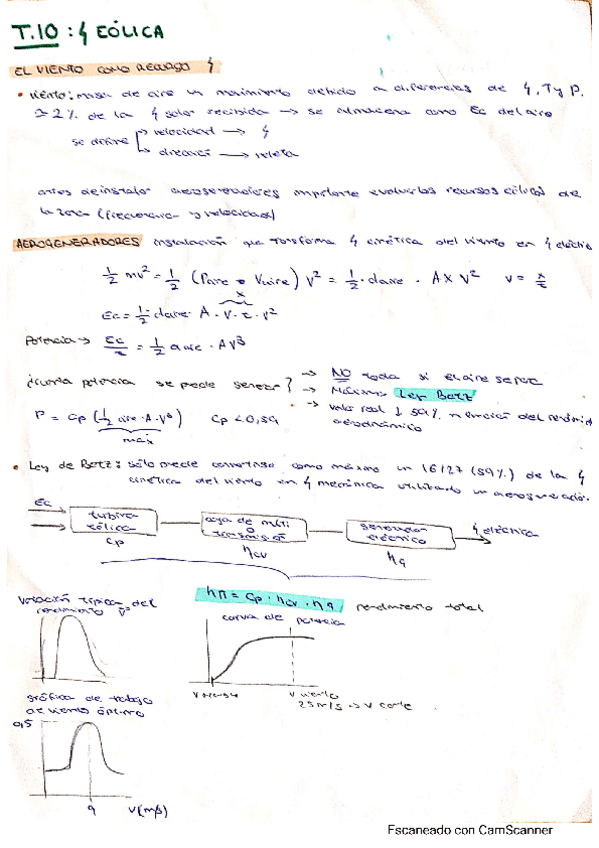 T.10 : ϟ EÓLICA
EL VIENTO COMO RECURSO ϟ
• Viento: masa de aire en movimiento debido a diferencias de ϟ, T y P.
≃ 2% de la ϟ solar recibida → se almacena como Ec del aire
se define → velocidad → ϟ
→ dirección → veleta
antes de instalar aerogeneradores importante evaluar los recursos eólicos de
la zona (frecuencia y velocidad)
AEROGENERADORES instalación que transforma ϟ cinética del viento en ϟ eléctrica
1/2 mv² = 1/2 (Paire · Vaire) v² = 1/2 · daire · A x v² v = x/t
x
Ec = 1/2 · daire · A · v · t · v²
Potencia → Ec/t = 1/2 daire · A v³
¿cuanta potencia se puede generar? → NO toda si el aire se par
→ Máximo Ley Betz
→ valor real ↓ 59% en función del rendim
aerodinámico
P = Cp (1/2 aire · A · v³) Cp < 0,59
max
• Ley de Betz: sólo puede convertirse como máximo un 16/27 (59%) de la ϟ
cinética del viento en ϟ mecánica utilizando un aerogenerador.
Ec turbina eólica caja de multi o transmisión generador eléctrico ϟ eléctrica
Cp ηcv ηg
ηT = Cp · ηcv · ηg rendimiento total
variación típica del
rendimiento
curva de potencia
V viento
25 m/s → V corte
gráfica de trabajo
de viento óptimo
0,5
9 V(m/s)
Escaneado con CamScanner